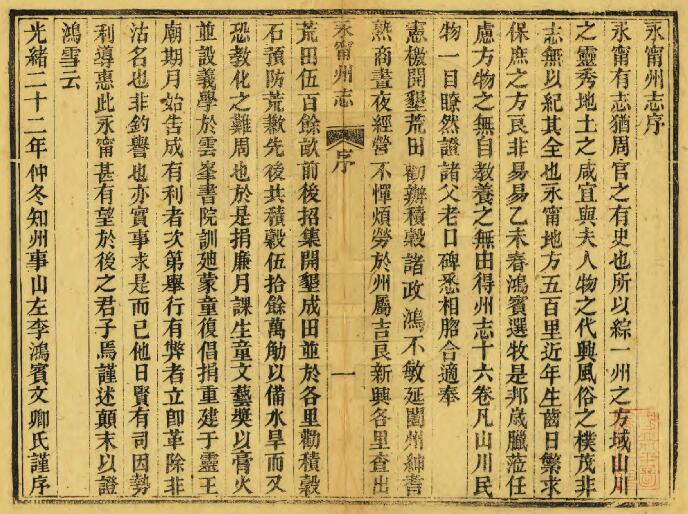 永甯州志序
永甯有志猶周官之有史也所以綜一州之方域山川
之靈秀地土之咸宜與夫人物之代興風俗之樸茂非
志無以紀其全也永甯地方五百里近年生齒日繁求
保庶之方良非易易乙未春鴻賓選牧是邦歲臘蒞任
慮方物之無自教養之無由得州志十六卷凡山川民
物一目瞭然證諸父老口碑悉相脗合適奉
憲檄開墾荒田勸辦積穀諸政鴻不敏延闔州紳耆
熟商晝夜經營不憚煩勞於州屬吉良新興各里查出
永甯州志
序
一
荒田伍百餘畝前後招集開墾成田並於各里勸積穀
石預防荒歉先後共積穀伍拾餘萬觔以備水旱而又
恐教化之難周也於是捐廉月課生童文藝獎以膏火
並設義學於雲峯書院訓廸蒙童復倡捐重建于靈王
廟期月始告成有利者次第舉行有弊者立卽革除非
沽名也非釣譽也亦實事求是而已他日賢有司因勢
利導惠此永甯甚有望於後之君子焉謹述顛末以證
鴻雪云
光緒二十二年仲冬知州事山左李鴻賓文卿氏謹序